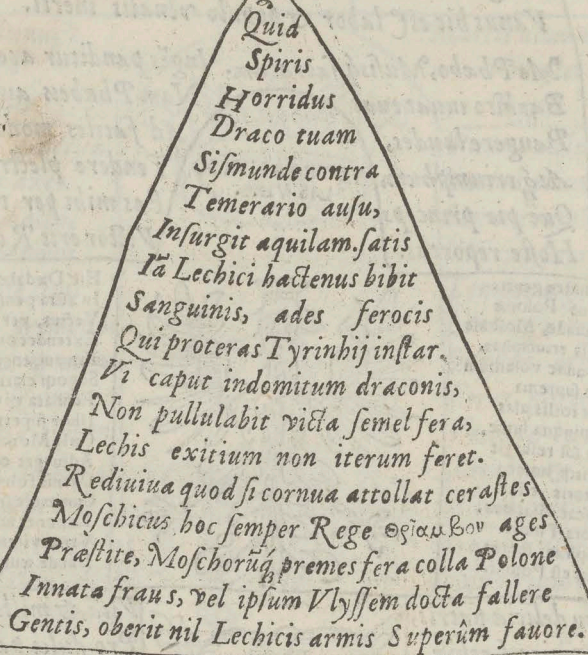 Quid
Spiris
Horridus
Draco tuam
Sismunde contra
Temerario ausu,
Insurgit aquilam. satis
Iã Lechici hactenus bibit
Sanguinis, ades ferocis
Qui proteras Tyrinhij instar.
Vi caput indomitum draconis,
Non pullulabit victa semel fera,
Lechis exitium non iterum feret.
Rediuiua quod si cornua attollat cerastes
Moschicus hoc semper Rege θρίαμβον ages
Præstite, Moschorũq́ premes fera colla Polone
Innata fraus, vel ipsum Vlyssem docta fallere
Gentis, oberit nil Lechicis armis Superûm fauore.